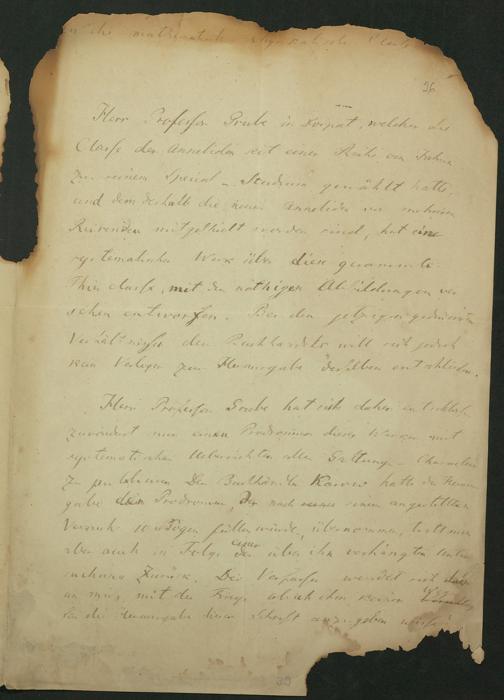 die mathematisch physikalische Classe
26
Herr Professor Grube in Dorpat, welcher die
Classe der Anneliden seit einer Reihe von Jahren
zu seinem Special-Studium gewählt hatte
und dem deshalb die neuen Anneliden von mehreren
Reisenden mitgetheilt worden sind, hat eine
systematisches Werk über diese gesammte
Thierclasse, mit den nöthigen Abbildungen ver
sehen entworfen. Bei den jetzigen gedrückten
Verhältnissen des Buchhandels will sich jedoch
kein Verleger zur Herausgabe desselben entschließen.
Herr Professor Grube hat sich daher entschlossen
zuvörderst nur einen Prodromus dieses Werkes mit
systematischen Uebersichten aller Gattungs-Charactere
zu publiciren. Der Buchhändler Karow hatte die Heraus
gabe des Prodromus, der nach einem angestellten
Versuche 10 Bogen füllen würde, übernommen, tritt nun
aber auch in Folge einer der über ihn verhängten Unter
suchung zurück. Der Verfasser wendet sich daher
an mich, mit der Frage ob ich ihm keinen
für die Herausgabe dieser Schrift anzugeben
30